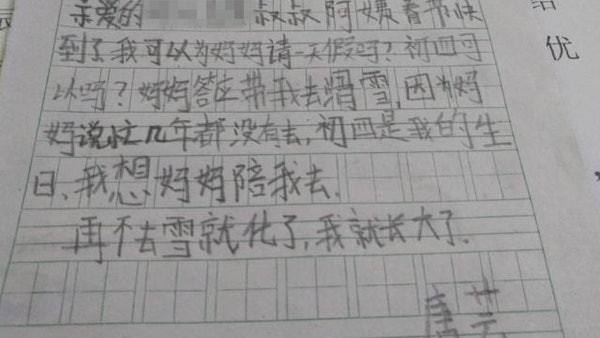 亲爱的 叔叔阿姨春节快
到了我可以为妈妈请一天假吗？初四可
以吗？妈妈答应带我去滑雪，因为妈
妈说忙几年都没有去，初四是我的生
日、我想妈妈陪我去.
再不去雪就化了，我就长大了.
优